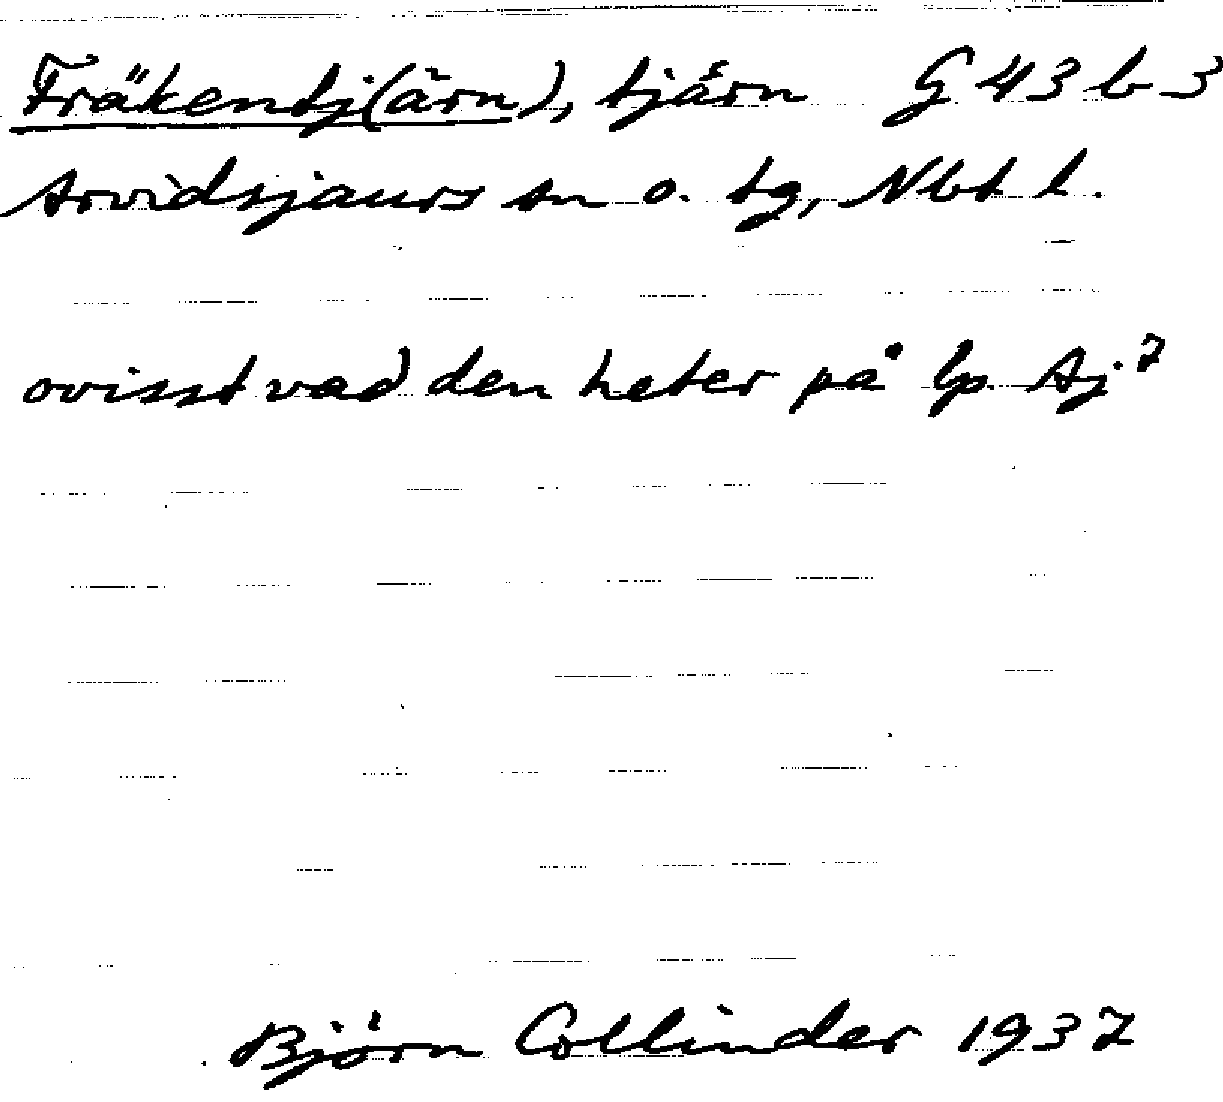 Fräkentj(ärn), tjärn G 43 b 3
Arvidsjaurs sn o. tg, Nbt l.
ovisst vad den heter på lp. Aj. 7
Björn Collinder 1937